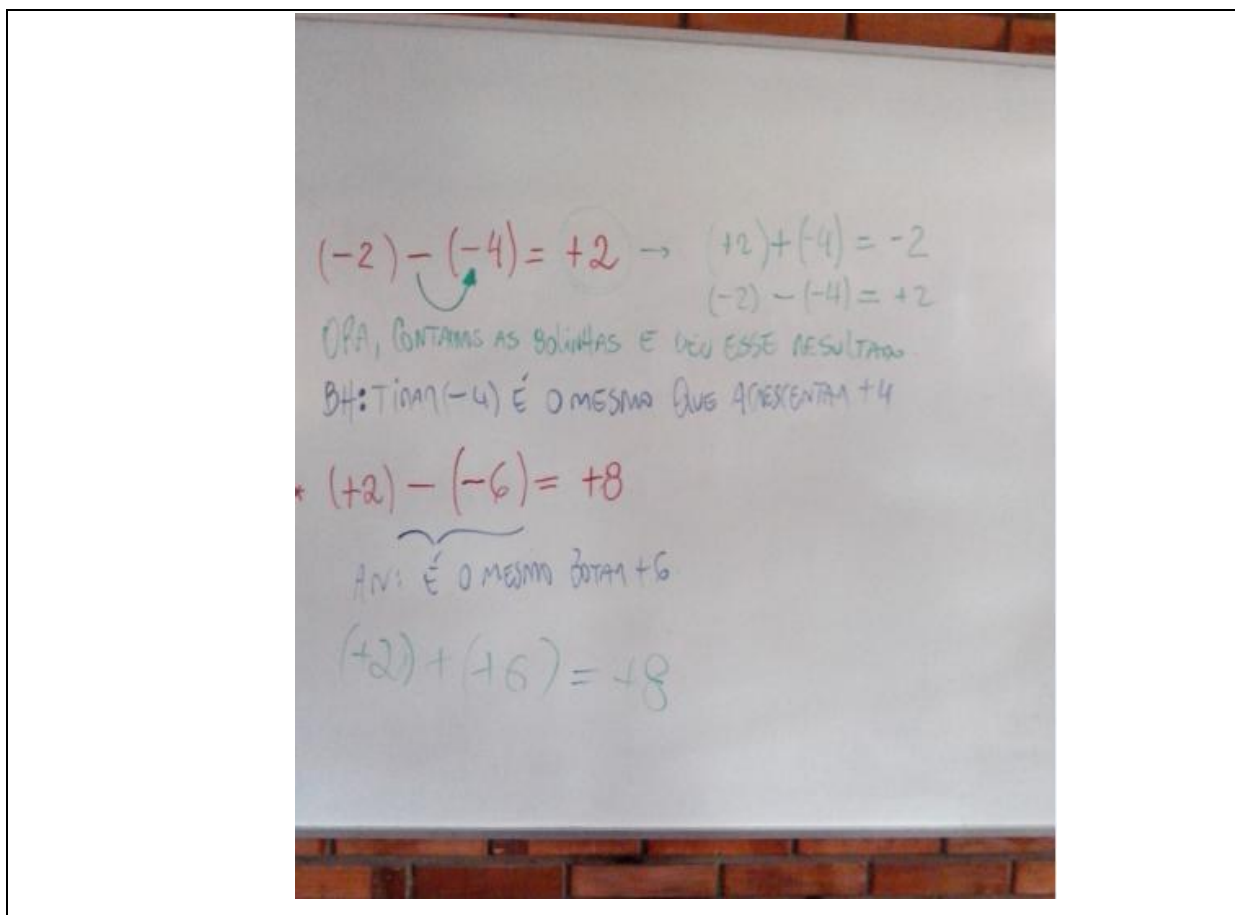 (-2) - (-4) = +2 → (+2)+(-4) = -2
(-2) - (-4) = +2
OPA, CONTAMOS AS BOLINHAS E DEU ESSE RESULTADO.
BH: TIRAR (-4) É O MESMO QUE ACRESCENTAR +4
* (+2) - (-6) = +8
AN: É O MESMO BOTAR +6
(+2) + (+6) = +8